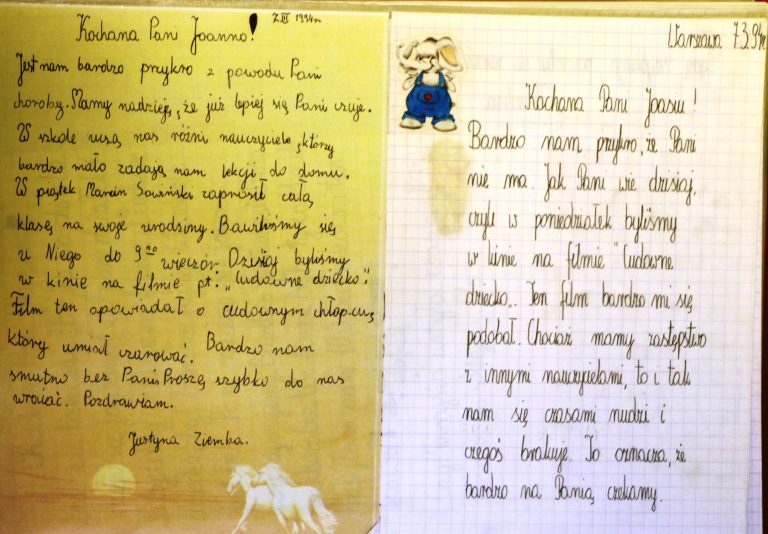 7 III 1994r
Kochana Pani Joanno!
Jest nam bardzo przykro z powodu Pani
choroby. Mamy nadzieję, że już lepiej się Pani czuje.
W szkole uczą nas różni nauczyciele, którzy
bardzo mało zadają nam lekcji do domu.
W piątek Marcin Sowiński zaprosił całą
klasę na swoje urodziny. Bawiliśmy się
u Niego do 9⁰⁰ wieczór. Dzisiaj byliśmy
w kinie na filmie pt. "Cudowne dziecko".
Film ten opowiadał o cudownym chłopcu,
który umiał czarować. Bardzo nam
smutno bez Pani. Proszę szybko do nas
wrócić. Pozdrawiam.
Justyna Ziemba.
Warszawa 7.3.94r.
Kochana Pani Joasiu!
Bardzo nam przykro, że Pani
nie ma. Jak Pani wie dzisiaj,
czyli w poniedziałek byliśmy
w kinie na filmie "Cudowne
dziecko". Ten film bardzo mi się
podobał. Chociaż mamy zastępstwo
z innymi nauczycielami, to i tak
nam się czasami nudzi i
czegoś brakuje. To oznacza, że
bardzo na Panią czekamy.